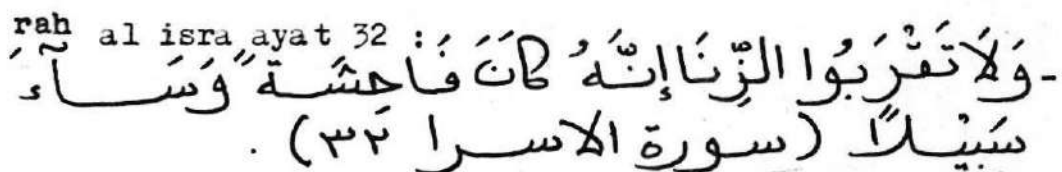 rah al isra ayat 32 :
-وَلَا تَقْرَبُوا الزِّنَا إِنَّهُ كَانَ فَاحِشَةً وَسَآءَ
سَبِيْلًا (سورة الاسرا ٣٢) .